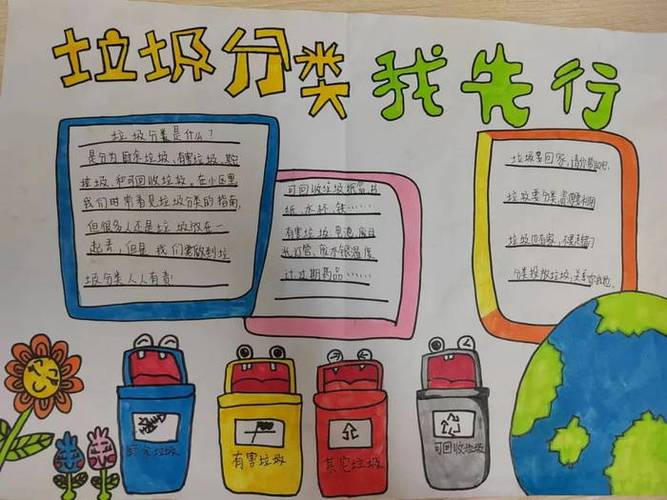 垃圾分类 我先行
垃圾分类是什么？
是分为厨余垃圾，有害垃圾，其它
垃圾，和可回收垃圾。在小区里
我们时常看见垃圾分类的指南，
但很多人还是垃圾放在一
起丢，但是我们要做到垃
圾分类人人有责！
可回收垃圾纸品，书
纸，水杯，铁……
有害垃圾 电池，废日
光灯管，废水银温度
计，过期药品……
垃圾要回家，请你帮助它。
垃圾要分类，资源
垃圾也有家，
分类投放垃圾，关系你我他。
垃圾
有害垃圾
其它垃圾
可回收垃圾